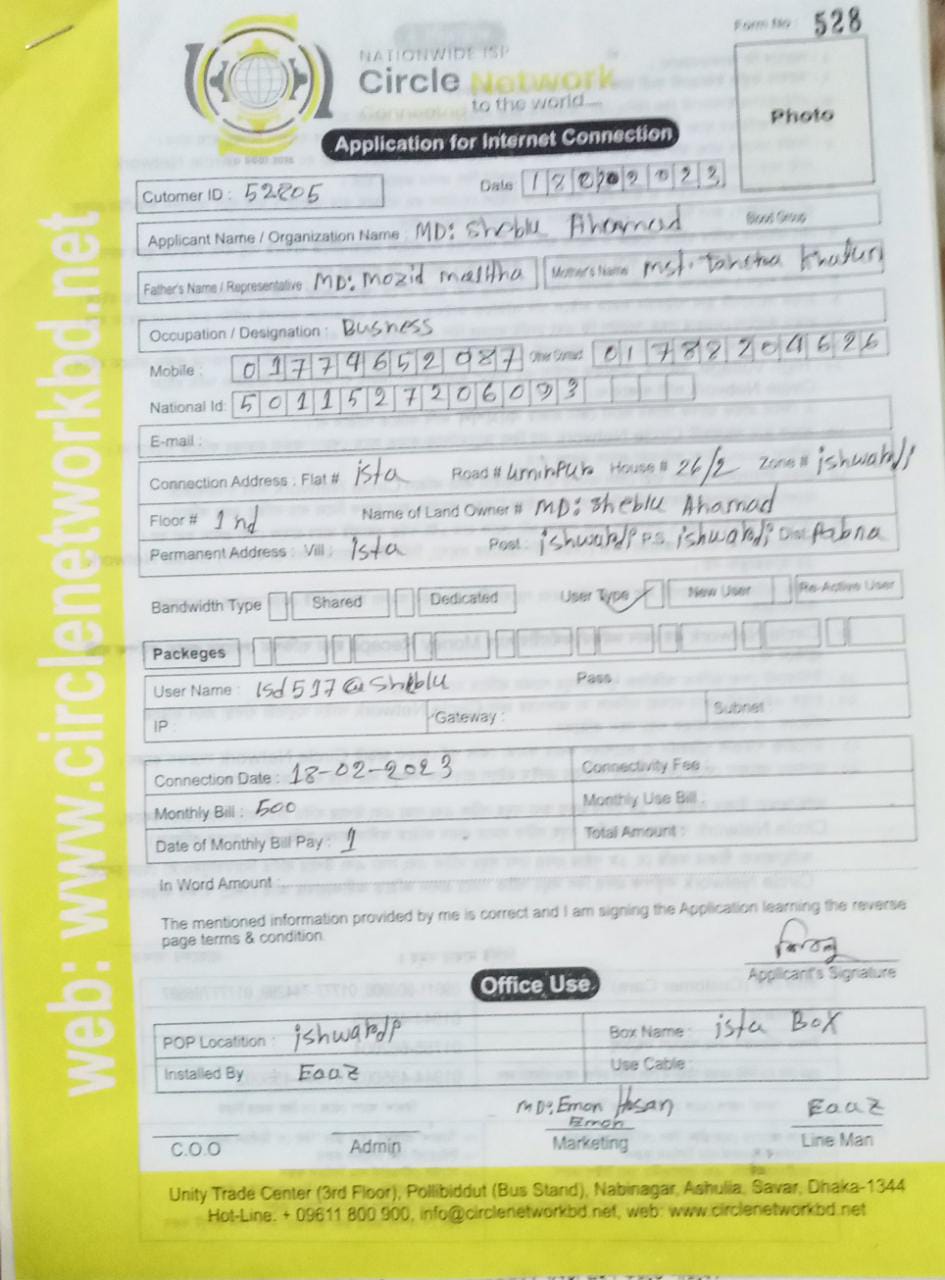 Form No : 528
NATIONWIDE ISP
Circle Network
to the world....
Photo
Application for Internet Connection
Cutomer ID : 52805 Date 18022023
Applicant Name / Organization Name MD: Sheblu Ahamad Blood Group
Father's Name / Representative MD: Mozid Mother's Name Mst. Khatun
Occupation / Designation : Busness
Mobile : 01774652087 Other Contact 01788204626
National Id: 5011527206093
E-mail :
Connection Address : Flat # ista Road # uminpur House # 26/2 Zone # ishwardi
Floor # 1nd Name of Land Owner # MD: Sheblu Ahamad
Permanent Address : Vill : ista Post : ishwardi P.S. ishwardi Dist Pabna
Bandwidth Type Shared Dedicated User Type New User Re-Active User
Packeges
User Name : isd517@Sheblu Pass
IP : Gateway : Subnet
Connection Date : 18-02-2023 Connectivity Fee :
Monthly Bill : 500 Monthly Use Bill :
Date of Monthly Bill Pay : 1 Total Amount :
In Word Amount :
The mentioned information provided by me is correct and I am signing the Application learning the reverse
page terms & condition.
Applicant's Signature
Office Use.
POP Locatition : ishwardi Box Name : ista BOX
Installed By Eaaz Use Cable :
MD: Emon Hosan Eaaz
Emon
C.O.O Admin Marketing Line Man
Unity Trade Center (3rd Floor), Pollibiddut (Bus Stand), Nabinagar, Ashulia, Savar, Dhaka-1344
Hot-Line: + 09611 800 900, info@circlenetworkbd.net, web: www.circlenetworkbd.net
web: www.circlenetworkbd.net